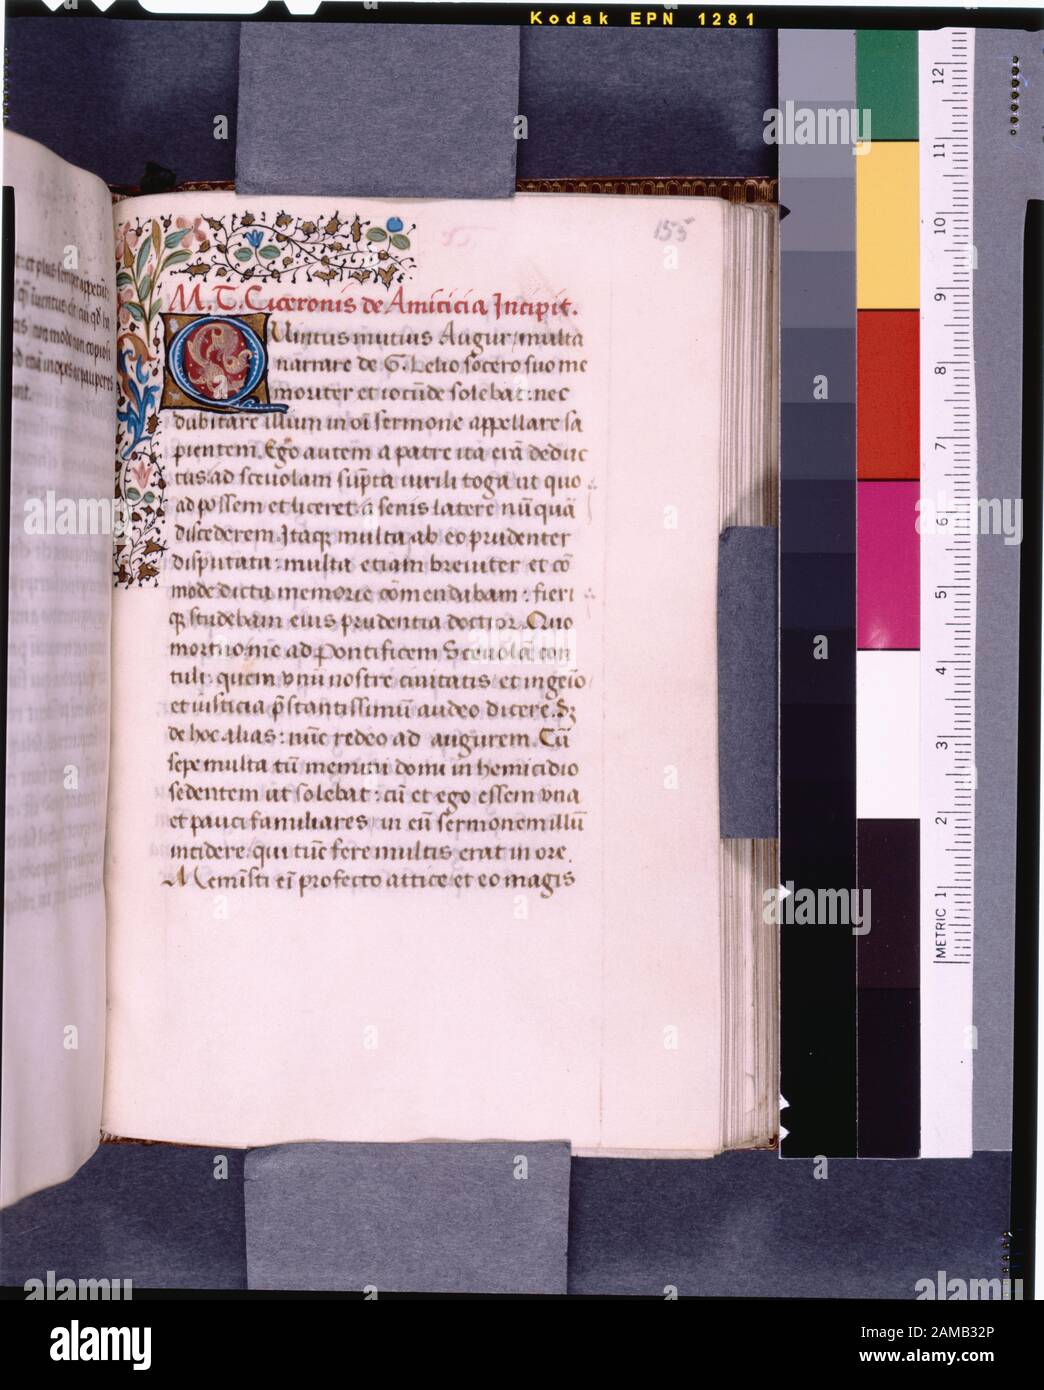 Kodak EPN 1281
155
M. T. Ciceronis de Amicicia Incipit.
Quintus mutius Augur multa
narrare de G. Lelio socero suo me
moriter et iocūde solebat: nec
dubitare illum in oī sermone appellare sa
pientem. Ego autem a patre ita erā deduc
tus ad scevolam sūpta virili toga ut quo
ad possem et liceret a senis latere nūquā
discederem. Itaqꝫ multa ab eo prudenter
disputata: multa etiam breviter et cō
mode dicta memorie cōmendabam: fieri
qꝫ studebam eius prudentia doctior. Quo
mortuo me ad Pontificem Scevolā con
tuli: quem vnū nostre civitatis et ingeīo
et iusticia p̄stantissimū audeo dicere. Sꝫ
de hoc alias: nūc redeo ad augurem. Cū
sepe multa tū memini domi in hemicidio
sedentem ut solebat: cū et ego essem vna
et pauci familiares in eū sermonem illū
incidere: qui tūc fere multis erat in ore.
Meministi eī profecto attice et eo magis
METRIC 1 2 3 4 5 6 7 8 9 10 11 12
alamy
Image ID: 2AMB32P
www.alamy.com